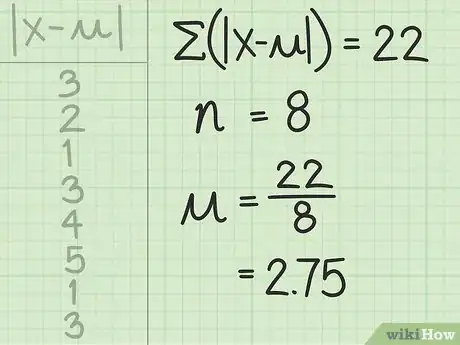 |x-μ|
3
2
1
3
4
5
1
3
Σ(|x-μ|) = 22
n = 8
μ = 22/8
= 2.75
wikiHow